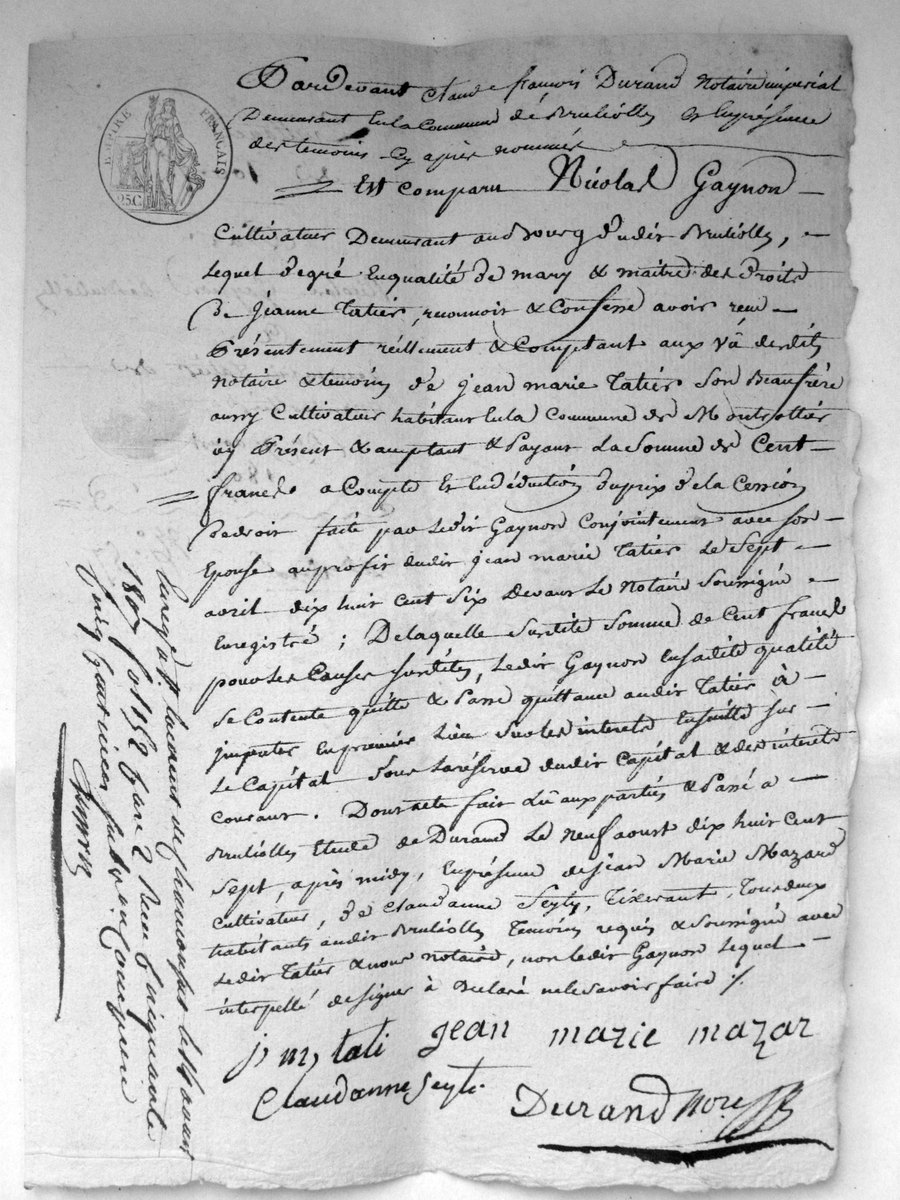 EMPIRE FRANÇAIS
25C.
Pardevant Claude françois Durand Notaire imperial
Demeurant En la Commune de Brulliolles Et En présence
des temoins Cy après nommés
Est comparu Nicolas Gaynon
Cultivateur Demeurant au Bourg dudit Brulliolles,
Lequel de gré En qualité de mary & maitre des Droits
De Jeanne Tatier, reconnoit & Confesse avoir reçu
Présentement réellement & Comptant aux vû desdits
notaire & temoins de jean marie Tatier Son Beaufrère
aussy Cultivateur habitant En la Commune de Montrottier
icy Présent & acceptant & Payant La Somme de Cent
francs a Compte Et En déduction du prix de la Cession
De droit faite par Ledit Gaynon Conjointement avec son
Epouse au profit dudit jean marie Tatier Le Sept
avril dix huit Cent Six Devant Le Notaire Soussigné
Enregistré ; De laquelle Susdite Somme de Cent francs
pour Les Causes susdites, Ledit Gaynon En sadite qualité
Se Contente quitte & Passe quittance audit Tatier à
imputer En premier Lieu Sur les interets Ensuitte sur
Le Capital Sous La réserve dudit Capital & des interets
Courant. Dont acte fait Lû aux parties & Passé a
Brulliolles Etude de Durand Le neuf aoust dix huit Cent
Sept, après midy, En présence de jean Marie Mazard
Cultivateur, & de Claudanne Seyty, Tixerant, Tous deux
habitants audit Brulliolles Temoins requis & Soussignés avec
Ledit Tatier & nous notaire, non Ledit Gaynon Lequel
interpellé de signer à Déclaré ne le savoir faire ./.
j m tati jean marie mazar
Claudanne Seyti
Durand Nore
Enregé à St Laurent de Chamousset le 14 aout
1807 fol 152 Case 2 Reçu